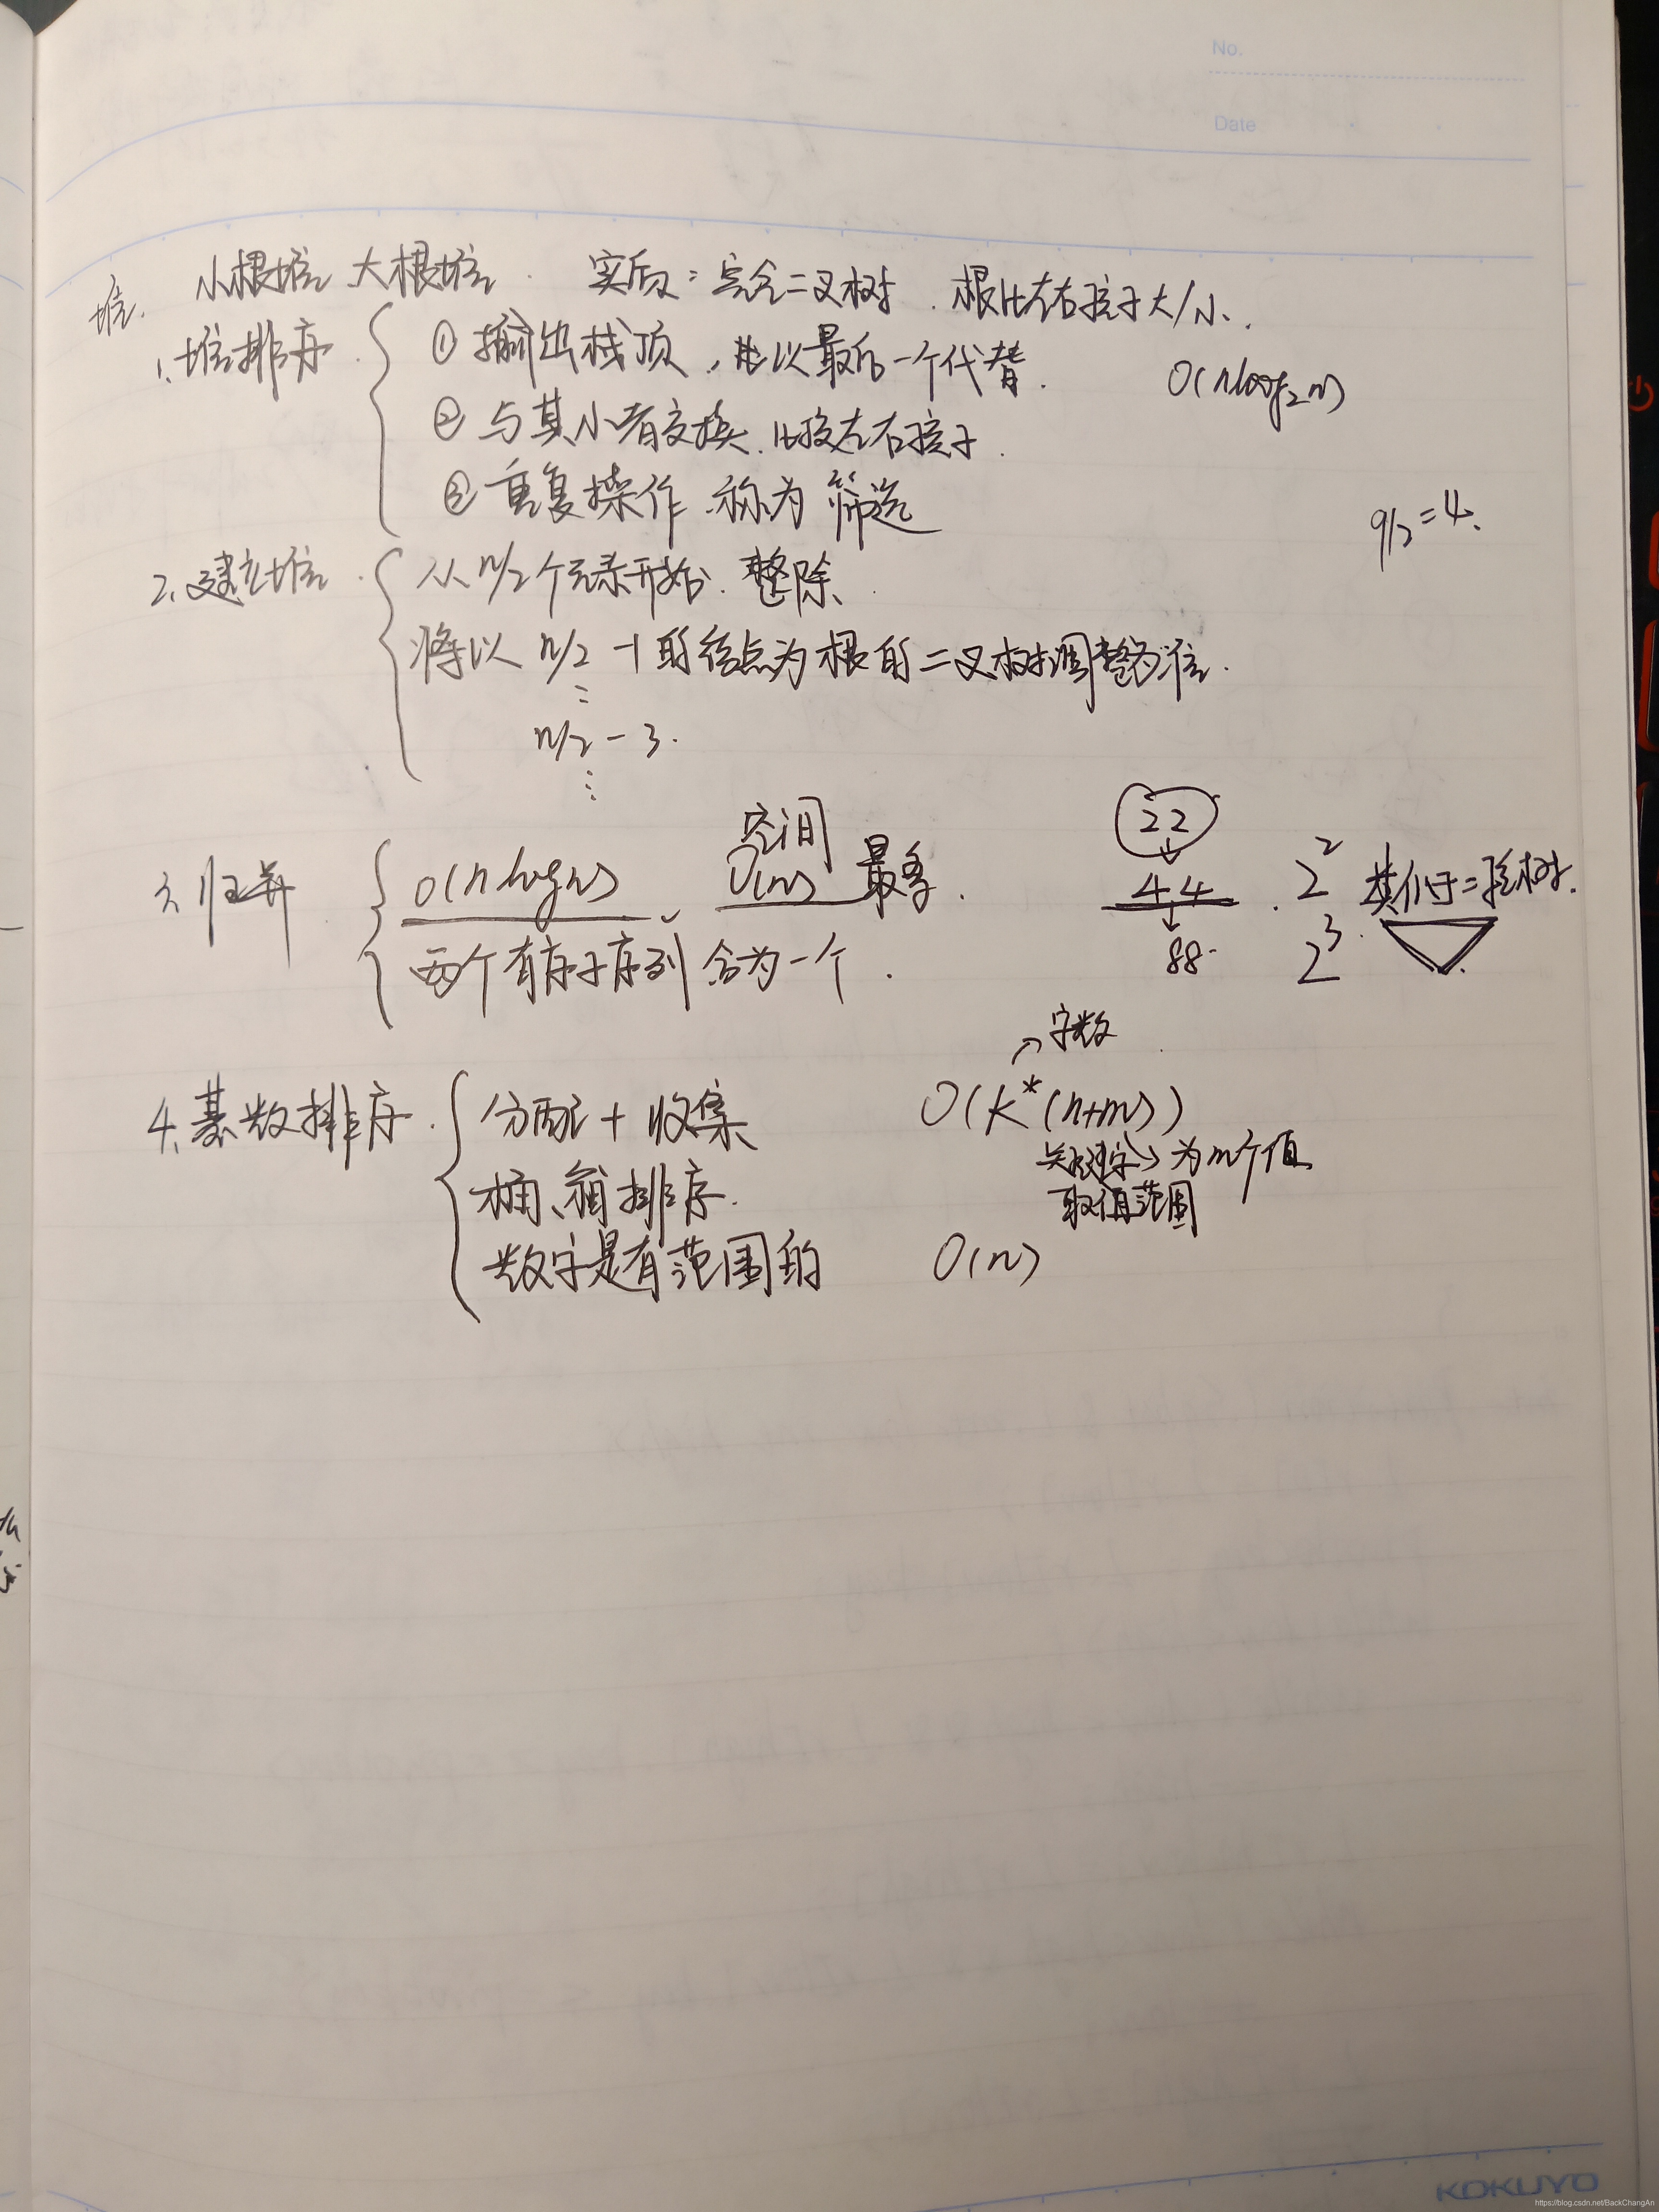 No.
Date
堆. 小根堆 大根堆. 实质:完全二叉树. 根比左右孩子大/小.
1. 堆排序. ① 输出栈顶, 并以最后一个代替. O(nlog₂n)
② 与其小者交换. 比较左右孩子.
③ 重复操作. 称为 筛选
9/2=4.
2. 建立堆. 从 n/2 个元素开始. 整除.
将以 n/2 -1 的结点为根的二叉树调整为堆.
n/2 - 3.
3. 归并 O(nlogn) 空间 O(n) 最多.
两个有序子序列合为一个.
22
44 . 2² 类似于二叉树.
88. 2³.
4. 基数排序. 分配 + 收集 O(K*(n+m))
字数
桶、箱排序. 关键字→为m个值
取值范围
数字是有范围的 O(n)
KOKUYO
https://blog.csdn.net/BackChangAn